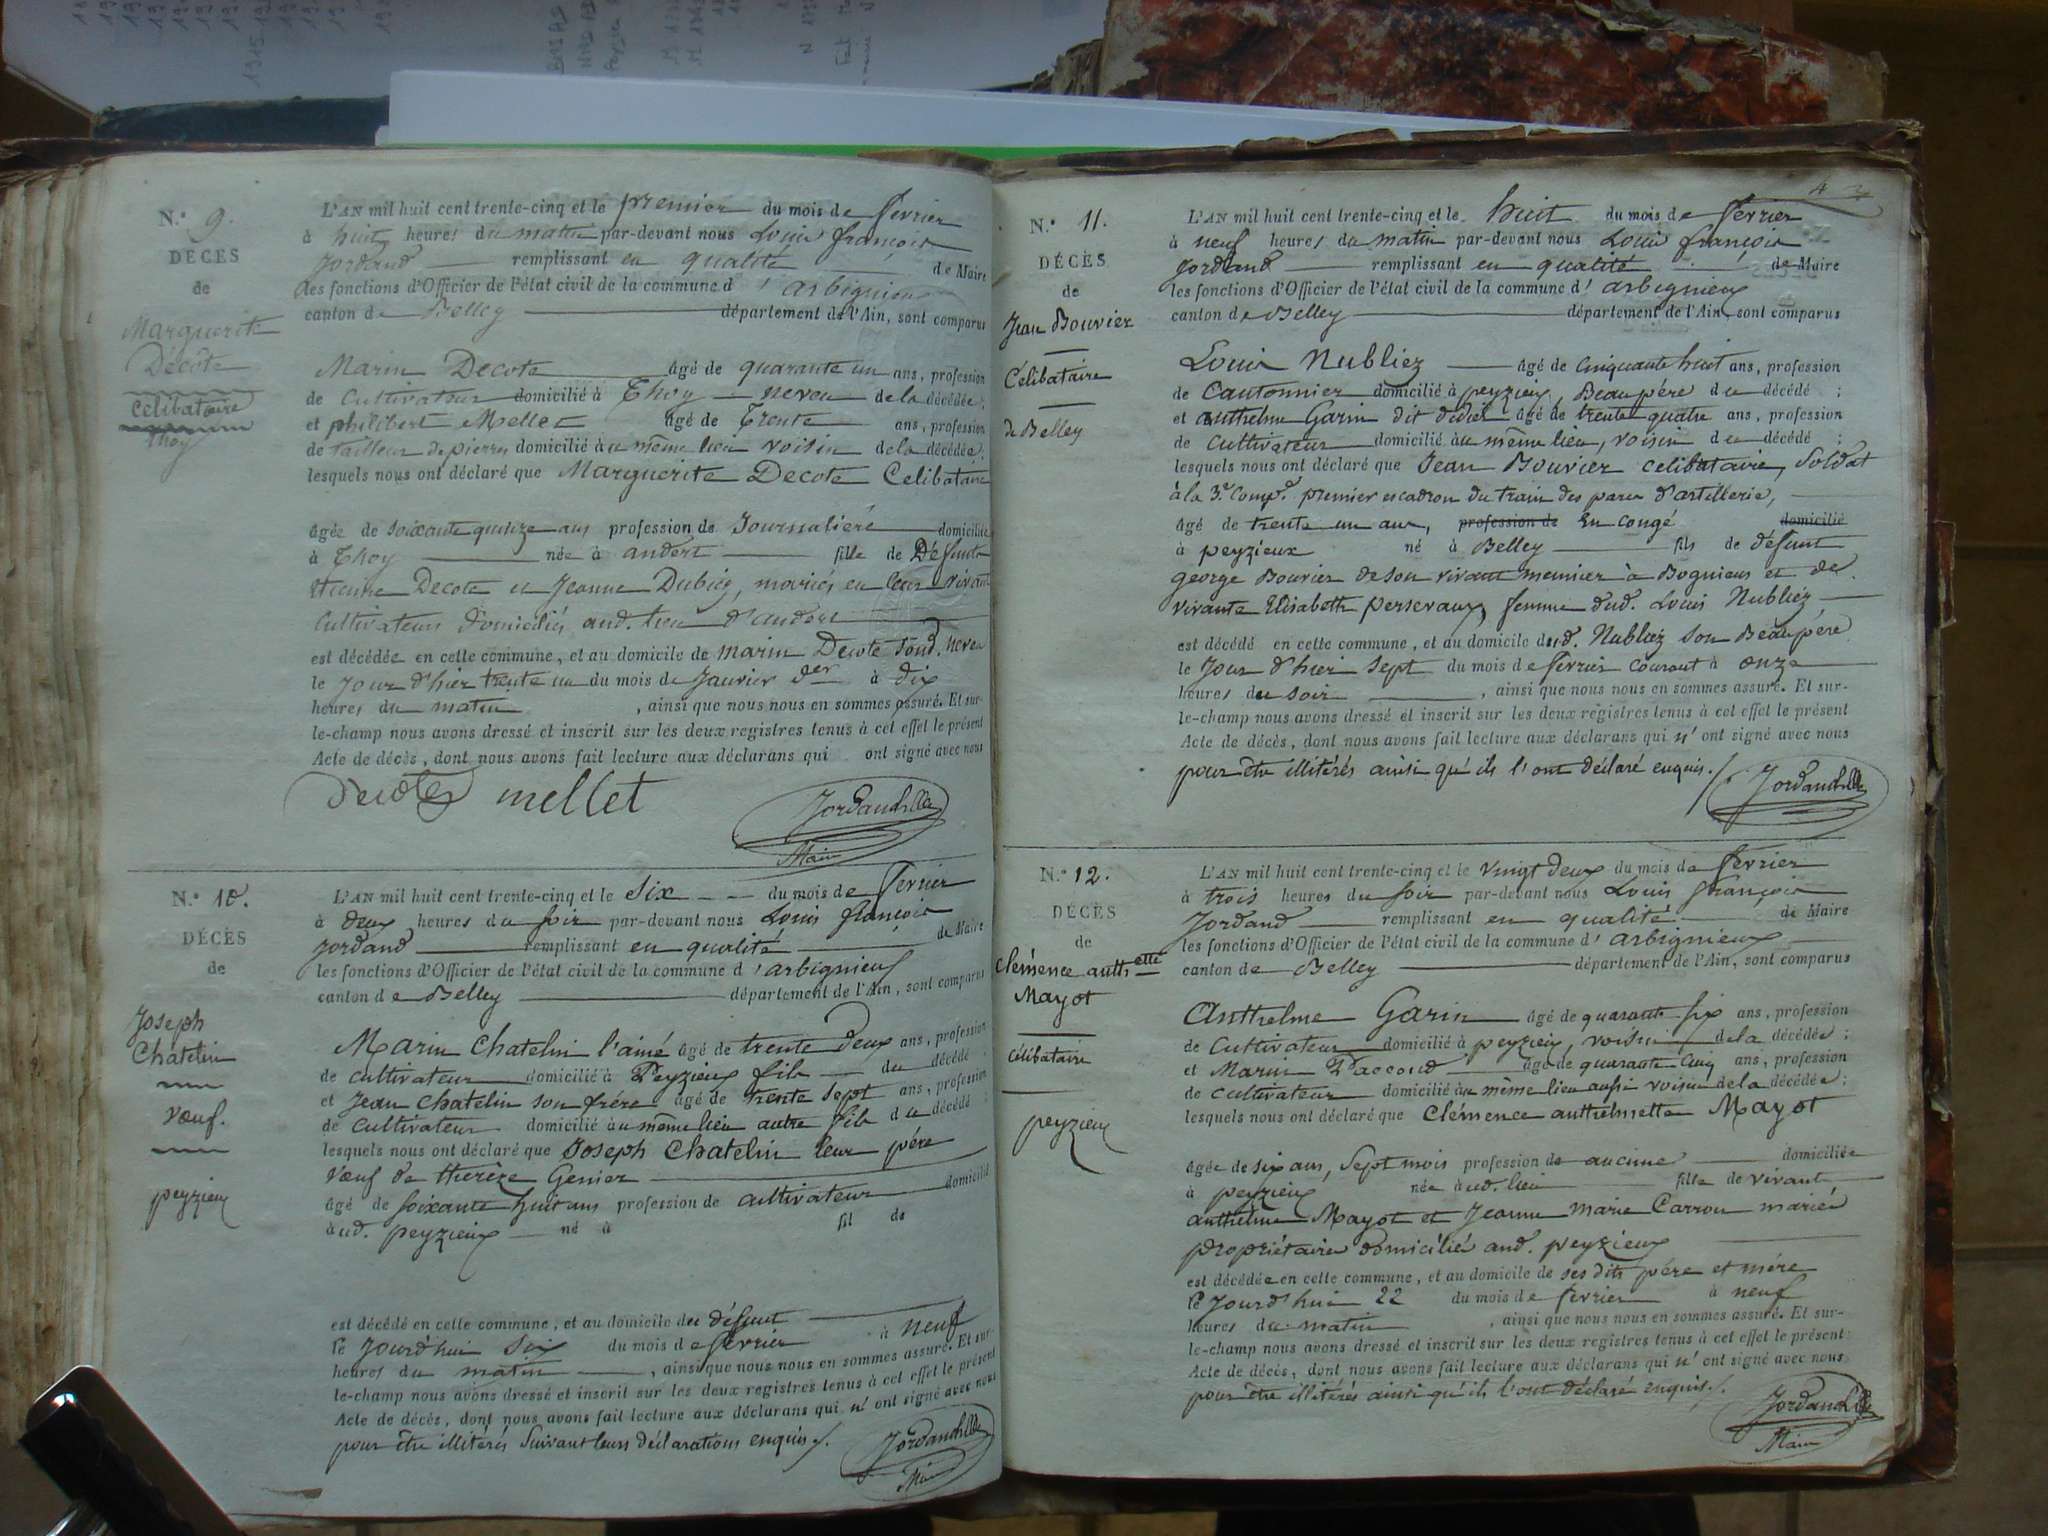 N.° 9.
DÉCÈS
de
Marguerite
Decôte
celibataire
thoy
L'AN mil huit cent trente-cinq et le premier du mois de fevrier
à huit heures du matin par-devant nous Louis françois
Jordand remplissant en qualité de Maire
les fonctions d'Officier de l'état civil de la commune d'arbignieux
canton de Belley département de l'Ain, sont comparus
Marin Decote âgé de quarante un ans, profession
de Cultivateur domicilié à Thoy neveu de la décédée;
et philibert Mellet âgé de Trente ans, profession
de tailleur de pierres domicilié au même lieu voisin de la décédée;
lesquels nous ont déclaré que Marguerite Decote Celibataire
âgée de soixante quinze ans profession de Journaliere domiciliée
à Thoy née à andert fille de Défunts
etienne Decote et Jeanne mariés en leur vivant
Cultivateurs domiciliés aud. lieu d'andert
est décédée en cette commune, et au domicile de marin Decote sond. neveu
le Jour d'hier trente un du mois de Janvier der à dix
heures du matin, ainsi que nous nous en sommes assuré. Et sur-
le-champ nous avons dressé et inscrit sur les deux registres tenus à cet effet le présent
Acte de décès, dont nous avons fait lecture aux déclarans qui ont signé avec nous
Decote mellet Jordand
Maire
N.° 10.
DÉCÈS
de
Joseph
Chatelin
vœuf.
peyzieux
L'AN mil huit cent trente-cinq et le six du mois de fevrier
à deux heures du soir par-devant nous Louis françois
Jordand remplissant en qualité de Maire
les fonctions d'Officier de l'état civil de la commune d'arbignieux
canton de Belley département de l'Ain, sont comparus
Marin Chatelin l'ainé âgé de trente deux ans, profession
de cultivateur domicilié à Peyzieux fils du décédé;
et Jean Chatelin son frère âgé de trente sept ans, profession
de cultivateur domicilié au même lieu autre fils du décédé;
lesquels nous ont déclaré que Joseph Chatelin leur père
vœuf de therèze Genier
âgé de soixante huit ans profession de cultivateur domicilié
aud. peyzieux né à fil de
est décédé en cette commune, et au domicile du défunt
le Jourd'hui six du mois de fevrier à neuf
heures du matin, ainsi que nous nous en sommes assuré. Et sur-
le-champ nous avons dressé et inscrit sur les deux registres tenus à cet effet le présent
Acte de décès, dont nous avons fait lecture aux déclarans qui n'ont signé avec nous
pour être illitérés suivant leurs déclarations enquis./. Jordand
Maire
N.° 11.
DÉCÈS
de
Jean Bouvier
Célibataire
de Belley
L'AN mil huit cent trente-cinq et le huit du mois de fevrier
à neuf heures du matin par-devant nous Louis françois
Jordand remplissant en qualité de Maire
les fonctions d'Officier de l'état civil de la commune d'arbignieux
canton de Belley département de l'Ain, sont comparus
Louis Nubliez âgé de cinquante huit ans, profession
de Cantonnier domicilié à peyzieux, Beaupére du décédé;
et anthelme Garin dit didier âgé de trente quatre ans, profession
de cultivateur domicilié au même lieu, voisin du décédé;
lesquels nous ont déclaré que Jean Bouvier celibataire, Soldat
à la 3.e Comp.e premier escadron du train des parcs d'artillerie,
âgé de trente un ans, profession de En congé domicilié
à peyzieux né à Belley fils de défunt
george Bouvier de son vivant meunier à Bognieus et de
vivante Elisabeth persevaux, femme dud. Louis Nubliez
est décédé en cette commune, et au domicile dud. Nubliez son Beaupére
le Jour d'hier sept du mois de fevrier courant à onze
heures du soir, ainsi que nous nous en sommes assuré. Et sur-
le-champ nous avons dressé et inscrit sur les deux registres tenus à cet effet le présent
Acte de décès, dont nous avons fait lecture aux déclarans qui n'ont signé avec nous
pour être illitérés ainsi qu'ils l'ont déclaré enquis./. Jordand
N.° 12.
DÉCÈS
de
Clémence anth.ette
Mayot
célibataire
peyzieux
L'AN mil huit cent trente-cinq et le vingt deux du mois de fevrier
à trois heures du soir par-devant nous Louis françois
Jordand remplissant en qualité de Maire
les fonctions d'Officier de l'état civil de la commune d'arbignieux
canton de Belley département de l'Ain, sont comparus
Anthelme Garin âgé de quarante six ans, profession
de Cultivateur domicilié à peyzieux, voisin de la décédée;
et Marin âgé de quarante cinq ans, profession
de cultivateur domicilié au même lieu aussi voisin de la décédée;
lesquels nous ont déclaré que Clémence anthelmette Mayot
âgée de six ans, sept mois profession de aucune domiciliée
à peyzieux née aud. lieu fille de vivant
anthelme Mayot et Jeanne marie Carron mariés
propriétaires domiciliés aud. peyzieux
est décédée en cette commune, et au domicile de ses dits père et mère
le Jourd'hui 22 du mois de fevrier à neuf
heures du matin, ainsi que nous nous en sommes assuré. Et sur-
le-champ nous avons dressé et inscrit sur les deux registres tenus à cet effet le présent
Acte de décès, dont nous avons fait lecture aux déclarans qui n'ont signé avec nous
pour être illitérés ainsi qu'ils l'ont déclaré enquis./. Jordand
Maire